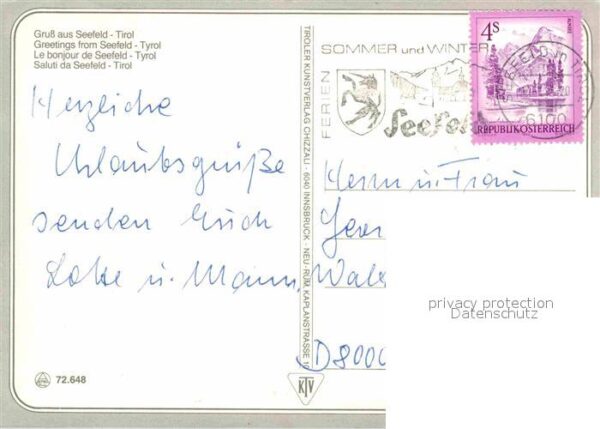 Gruß aus Seefeld - Tirol
Greetings from Seefeld - Tyrol
Le bonjour de Seefeld - Tyrol
Saluti da Seefeld - Tirol
Herzliche
Urlaubsgrüße
senden Euch
u. Mann
72.648
TIROLER KUNSTVERLAG CHIZZALI · 6040 INNSBRUCK - NEU-RUM, KAPLANSTRASSE
KTV
FERIEN
SOMMER und WINTER
Seefeld
4s
REPUBLIK ÖSTERREICH
SEEFELD IN TIROL
6100
Herrn u. Frau
D8000
privacy protection
Datenschutz